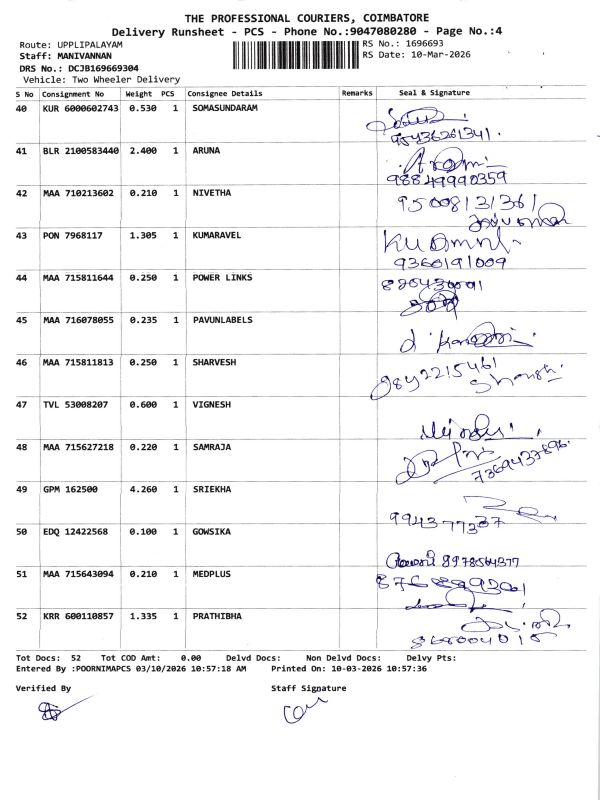 THE PROFESSIONAL COURIERS, COIMBATORE
Delivery Runsheet - PCS - Phone No.:9047080280 - Page No.:4
Route: UPPLIPALAYAM RS No.: 1696693
Staff: MANIVANNAN RS Date: 10-Mar-2026
DRS No.: DCJB169669304
Vehicle: Two Wheeler Delivery
S No Consignment No Weight PCS Consignee Details Remarks Seal & Signature
40 KUR 6000602743 0.530 1 SOMASUNDARAM
41 BLR 2100583440 2.400 1 ARUNA
42 MAA 710213602 0.210 1 NIVETHA
95008131361
43 PON 7968117 1.305 1 KUMARAVEL
9360191009
44 MAA 715811644 0.250 1 POWER LINKS
45 MAA 716078055 0.235 1 PAVUNLABELS
46 MAA 715811813 0.250 1 SHARVESH
9842215461
47 TVL 53008207 0.600 1 VIGNESH
48 MAA 715627218 0.220 1 SAMRAJA
49 GPM 162500 4.260 1 SRIEKHA
994377337
50 EDQ 12422568 0.100 1 GOWSIKA
51 MAA 715643094 0.210 1 MEDPLUS
52 KRR 600110857 1.335 1 PRATHIBHA
Tot Docs: 52 Tot COD Amt: 0.00 Delvd Docs: Non Delvd Docs: Delvy Pts:
Entered By :POORNIMAPCS 03/10/2026 10:57:18 AM Printed On: 10-03-2026 10:57:36
Verified By Staff Signature